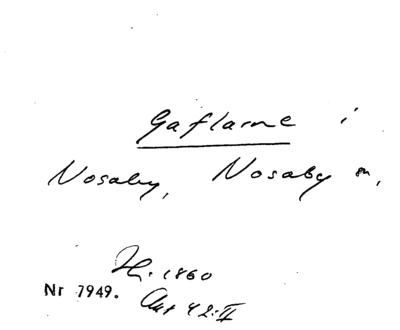 Gaflarne i
Nosaby, Nosaby sn,
Hi. 1860
Nr 7949. Ant 42:II